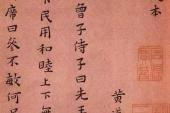 本
黄
曾子侍子曰先王
民用和睦上下無
席曰參不敏何